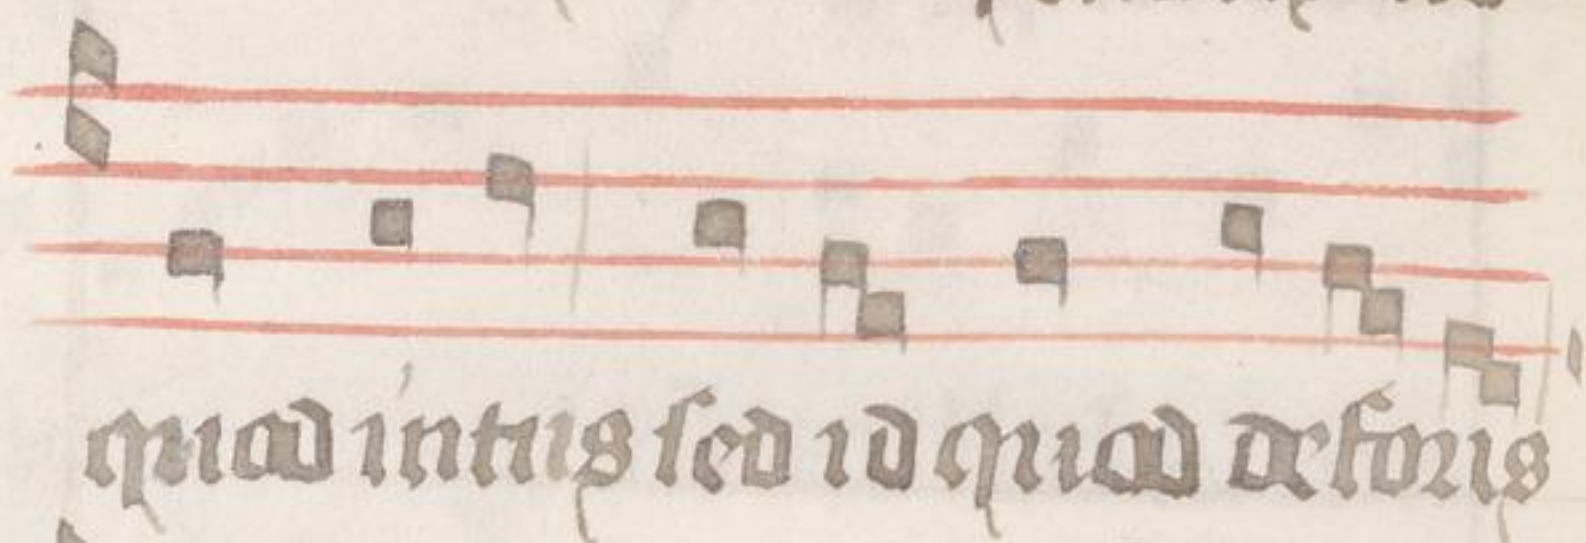 quod intus sed id quod deforis